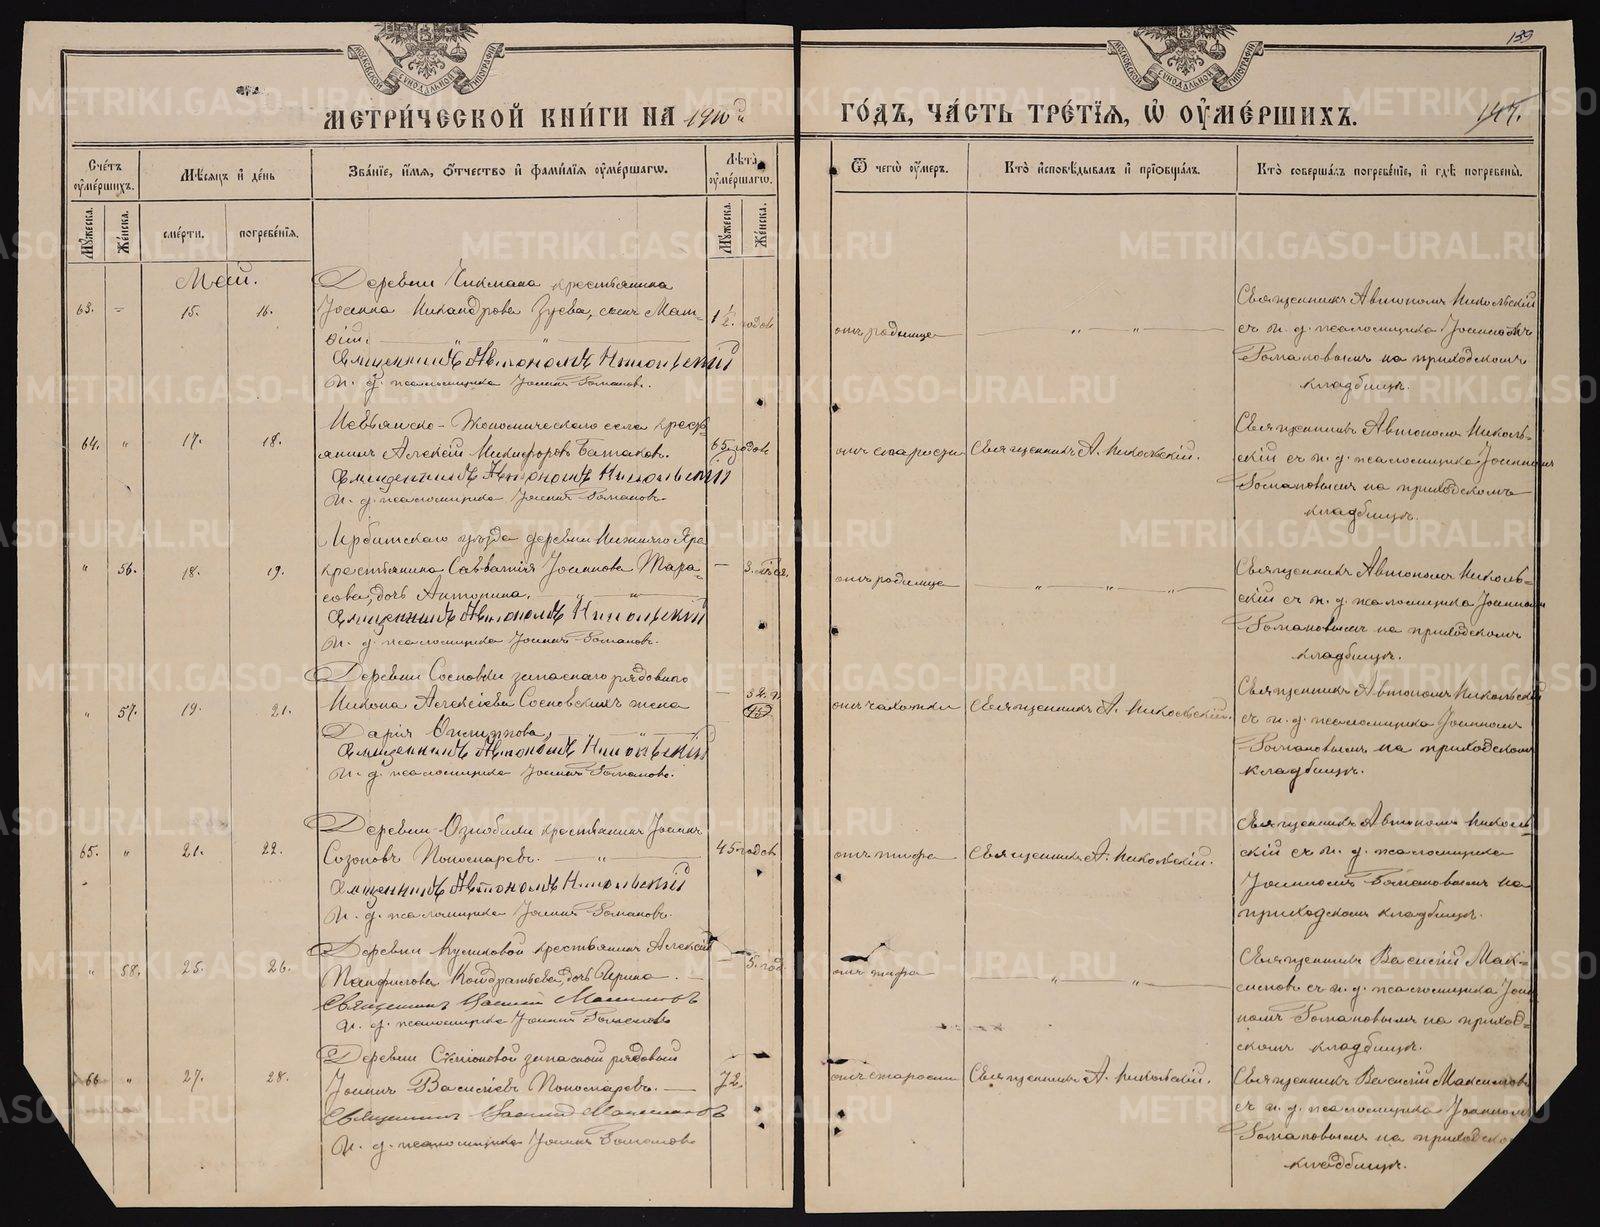 139
МОСКОВСКОЙ СѴНОДАЛЬНОЙ ТИПОГРАФІИ
МОСКОВСКОЙ СѴНОДАЛЬНОЙ ТИПОГРАФІИ
МЕТРИ́ЧЕСКОЙ КНИ́ГИ НА 1910 ГО́ДЪ, ЧА́СТЬ ТРЕ́ТІѦ, Ѡ҆ ОУ҆МЕ́РШИХЪ.
147.
Сче́тъ оу҆ме́ршихъ.
Мѣ́сѧцъ и҆ де́нь
Зва́нїе, и҆́мѧ, ѻ҆́тчество и҆ фами́лїѧ оу҆ме́ршагѡ.
Лѣ́та оу҆ме́ршагѡ.
Ѿ чегѡ̀ оу҆́меръ.
Кто̀ и҆сповѣ́дывалъ и҆ прїѡбща́лъ.
Кто̀ соверша́лъ погребе́нїе, и҆ гдѣ̀ погребены̀.
Мꙋ́жеска.
Же́нска.
сме́рти.
погребе́нїѧ.
Мꙋ́жеска.
Же́нска.
Май.
63. 15. 16.
Деревни Чикмана крестьянина
Іоанна Никандрова Зуева, сынъ Мат-
ѳій.
Священникъ Автономъ Никольскій
И. д. псаломщика Іоаннъ Романовъ.
1 1/2 годов
отъ родимца
Священникъ Автономъ Никольскій
съ и. д. псаломщика Іоанномъ
Романовымъ на приходскомъ
кладбищѣ.
64. " 17. 18.
Невьянско-Экономическаго села крест-
янинъ Алексій Никифоровъ Батаковъ.
Священникъ Автономъ Никольскій
И. д. псаломщика Іоаннъ Романовъ
65 годов
отъ старости
Священникъ А. Никольскій.
Священникъ Автономъ Николь-
скій съ и. д. псаломщика Іоанномъ
Романовымъ на приходскомъ
кладбищѣ.
" 56. 18. 19.
Ирбитскаго уѣзда деревни Нижняго Яра
крестьянина Савватія Іоаннова Тара-
сова, дочь Антонина.
Священникъ Автономъ Никольскій
И. д. псаломщика Іоаннъ Романовъ.
отъ родимца
Священникъ Автономъ Николь-
скій съ и. д. псаломщика Іоанномъ
Романовымъ на приходскомъ
кладбищѣ.
" 57. 19. 21.
Деревни Сосновки запаснаго рядоваго
Никона Алексіева Сосновскихъ жена
Дарія
Священникъ Автономъ Никольскій
И. д. псаломщика Іоаннъ Романовъ.
32
отъ чахотки
Священникъ А. Никольскій.
Священникъ Автономъ Никольскій
съ и. д. псаломщика Іоанномъ
Романовымъ на приходскомъ
кладбищѣ.
65. " 21. 22.
Деревни Ознобихи крестьянинъ Іоаннъ
Созоновъ Пономаревъ.
Священникъ Автономъ Никольскій
И. д. псаломщика Іоаннъ Романовъ.
45 годов
отъ тифа
Священникъ А. Никольскій.
Священникъ Автономъ Николь-
скій съ и. д. псаломщика
Іоанномъ Романовымъ на
приходскомъ кладбищѣ.
" 58. 25. 26.
Деревни Куликовой крестьянина Алексій
Панфилова Кондратьева, дочь Ирина.
Священникъ Василій Максимовъ
И. д. псаломщика Іоаннъ Романовъ
5. год.
отъ тифа
Священникъ Василій Мак-
симовъ съ и. д. псаломщика Іоан-
номъ Романовымъ на приход-
скомъ кладбищѣ.
66. " 27. 28.
Деревни запасной рядовый
Іоаннъ Василіевъ Пономаревъ.
Священникъ Василій Максимовъ
И. д. псаломщика Іоаннъ Романовъ
72.
отъ старости
Священникъ А. Никольскій.
Священникъ Василій Максимовъ
съ и. д. псаломщика Іоанномъ
Романовымъ на приходском
кладбищѣ.
METRIKI.GASO-URAL.RU